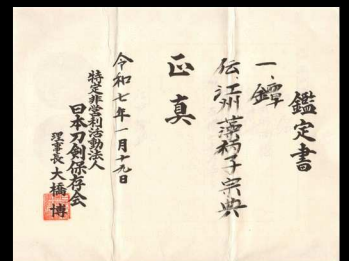 鑑定書
一、鐔
伝、江州藻柄子宗典
正真
令和七年一月十九日
特定非営利活動法人
日本刀剣保存会
理事長 大橋 博